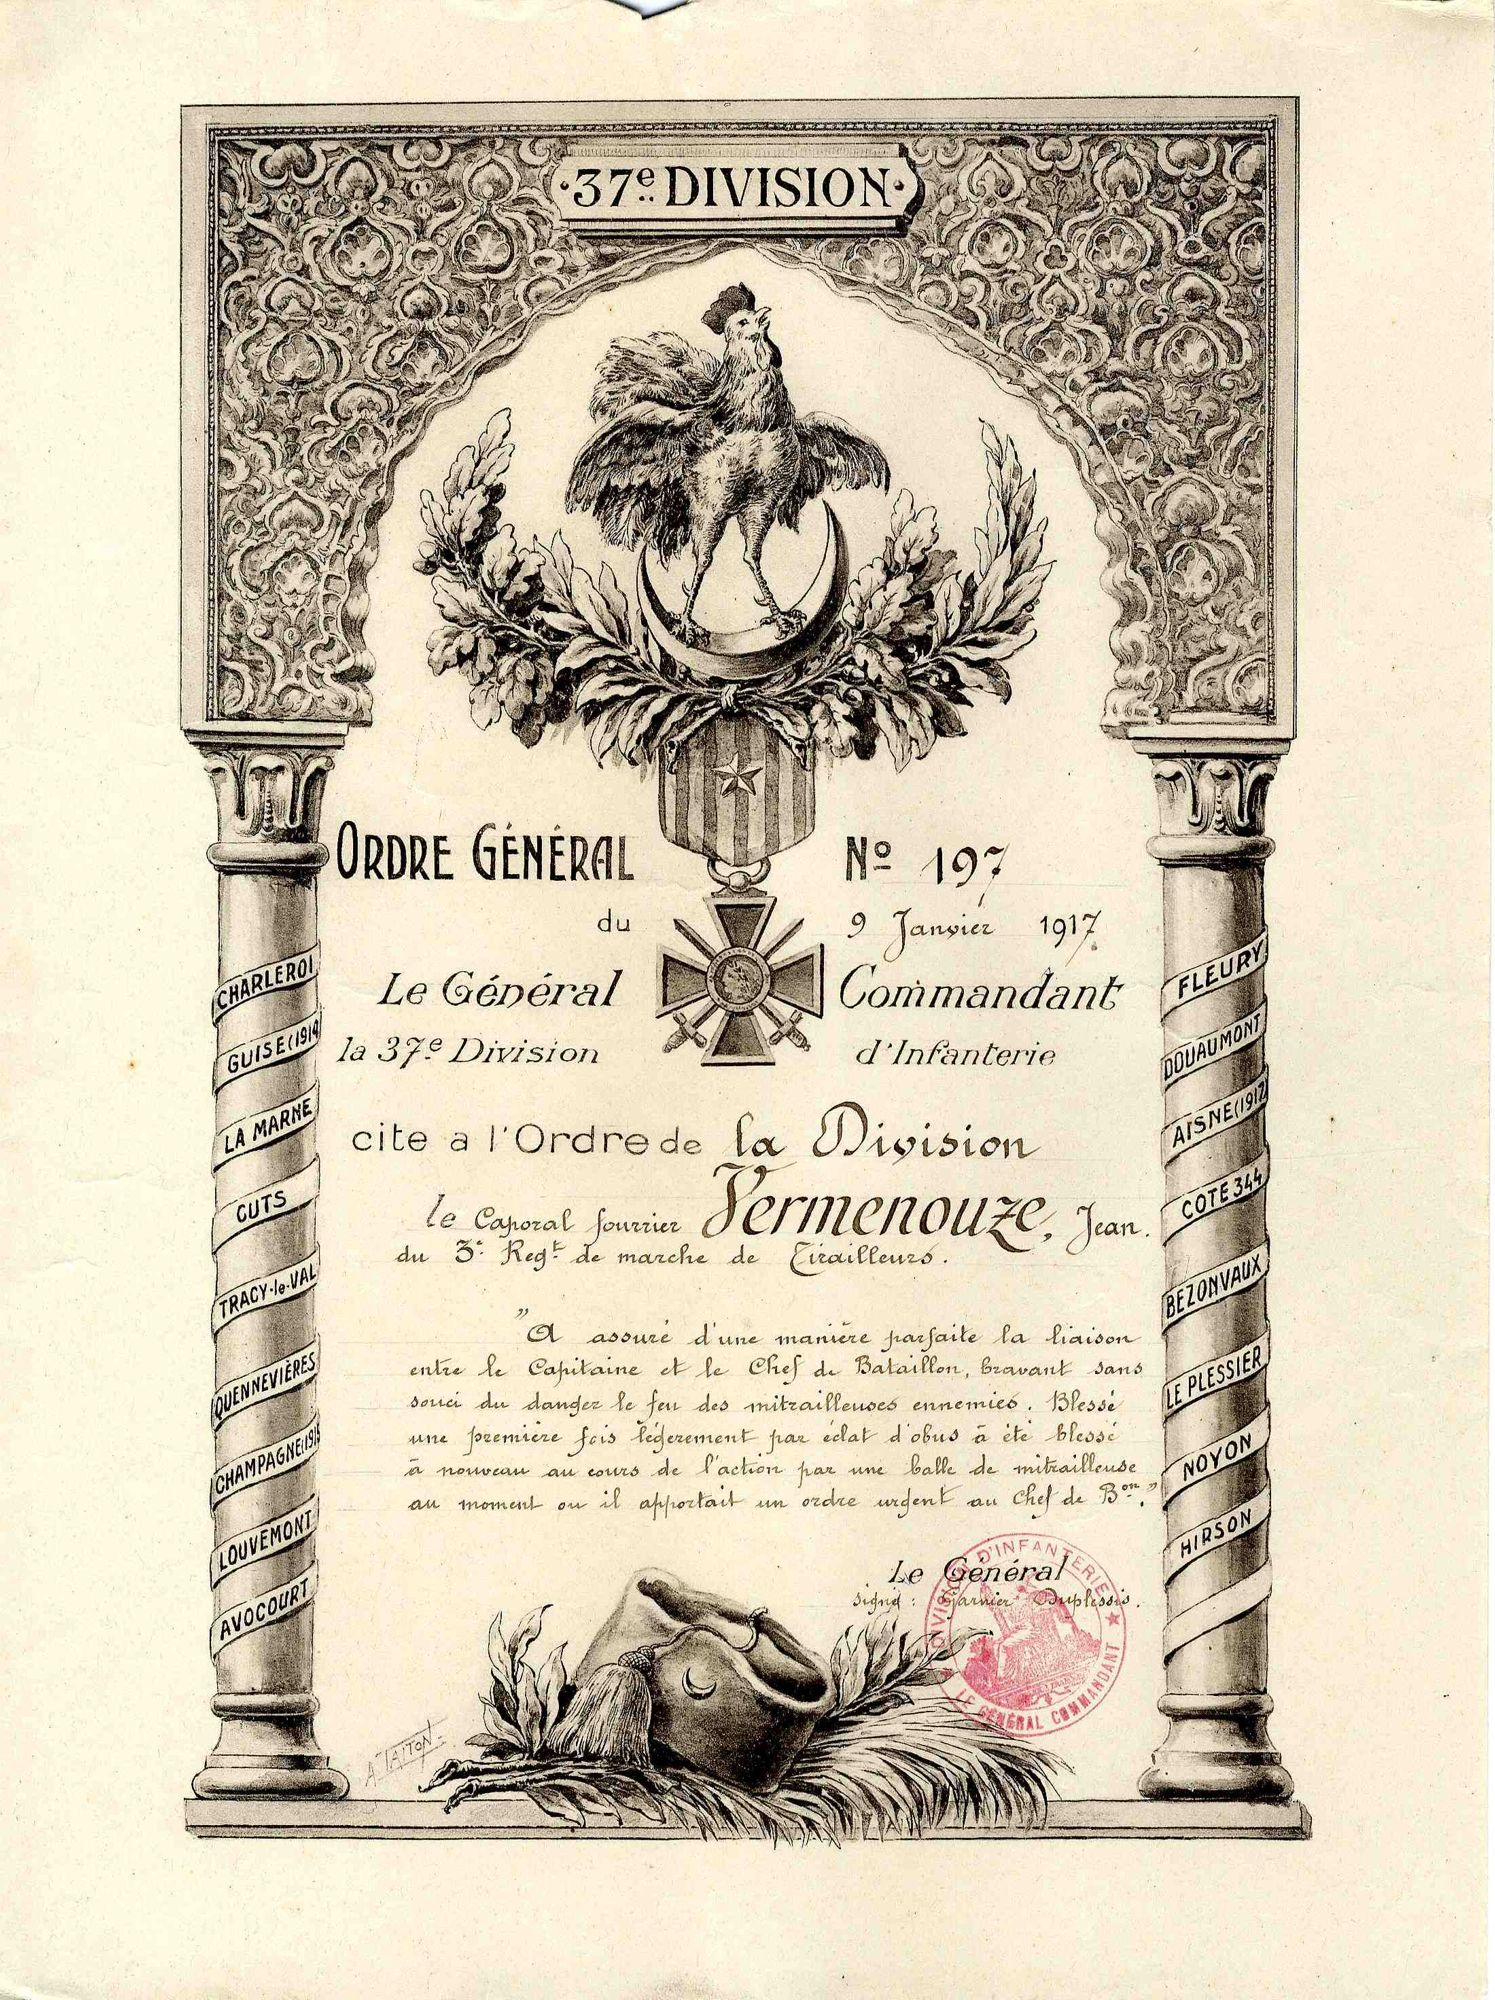 37e DIVISION
ORDRE GÉNÉRAL Nº 197
du 9 Janvier 1917.
Le Général Commandant
la 37e Division d'Infanterie
cite a l'Ordre de la Division
le Caporal fourrier Vermenouze, Jean.
du 3e Regt de marche de Tirailleurs.
"A assuré d'une manière parfaite la liaison
entre le Capitaine et le Chef de Bataillon, bravant sans
souci du danger le feu des mitrailleuses ennemies. Blessé
une première fois légèrement par éclat d'obus à été blessé
à nouveau au cours de l'action par une balle de mitrailleuse
au moment ou il apportait un ordre urgent au Chef de Bon."
Le Général
signé : Garnier Duplessis.
DIVISION D'INFANTERIE
LE GÉNÉRAL COMMANDANT
A. TAITON
CHARLEROI
GUISE (1914
LA MARNE
CUTS
TRACY-le-VAL
QUENNEVIÈRES
CHAMPAGNE (1915
LOUVEMONT
AVOCOURT
FLEURY
DOUAUMONT
AISNE (1917
COTE 344
BEZONVAUX
LE PLESSIER
NOYON
HIRSON